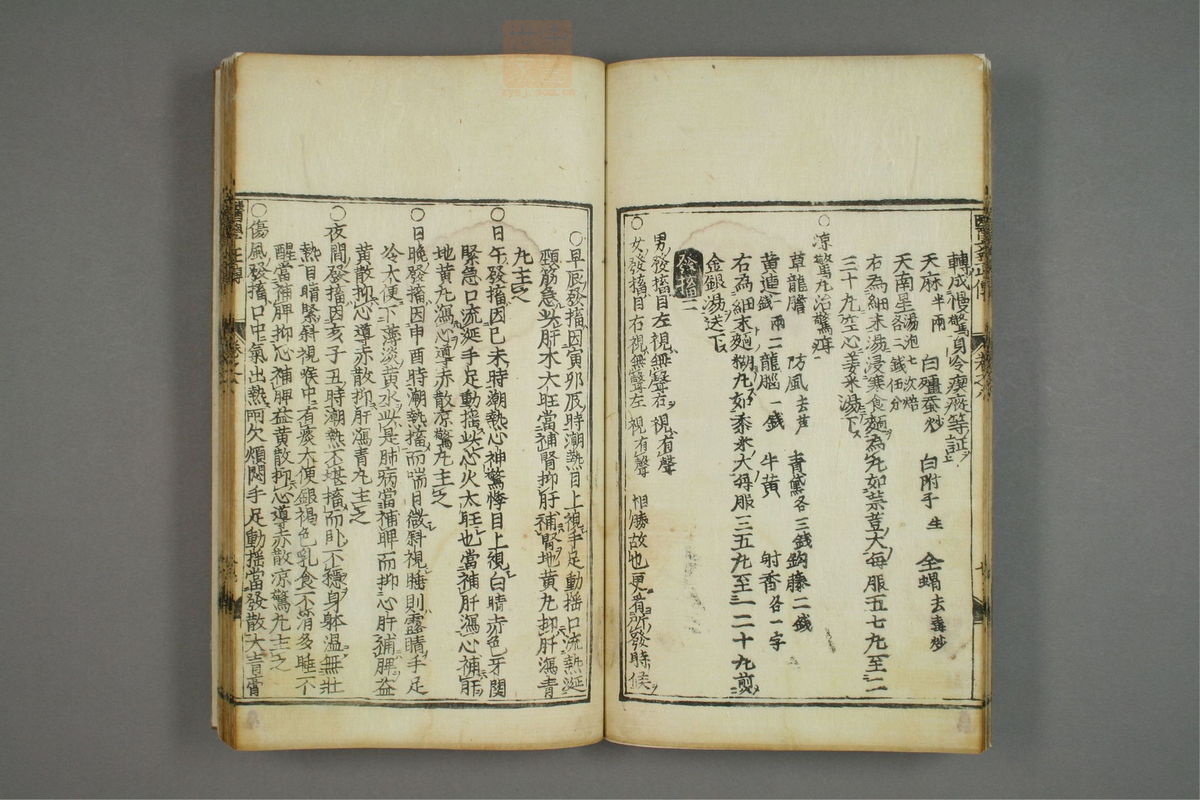 轉成慢驚身冷瘈瘲等証
天麻半兩 白殭蠶炒 白附子生 全蝎去毒炒
天南星湯泡七次焙各二錢伍分
右為細末湯浸寒食麵為丸如菉荳大每服五七丸至二
三十丸空心姜米湯下
○凉驚丸治驚疳
草龍膽 防風去芦 青黛各三錢鈎藤二錢
黄連一兩二錢 龍腦一錢 牛黄 射香各一字
右為細末麵糊丸如黍米大每服三五丸至一二十丸煎
金銀湯送下
發搐二
男發搐目左視無聲右視有聲
○女發搐目右視無聲左視有聲 相勝故也更看所發時候
○早辰發搐因寅卯辰時潮熱目上視手足動揺口流熱涎
頸筋急此肝木大旺當補腎抑肝補腎地黄丸抑肝瀉青
丸主之
○日午發搐因巳未時潮熱心神驚悸目上視白睛赤色牙関
緊急口流涎手足動揺此心火太旺也當補肝瀉心補肝
地黄丸瀉心導赤散凉驚丸主之
○日晚發搐因申酉時潮熱搐而喘目微斜視睡則露睛手足
冷大便下薄淡黄水此是肺病當補脾而抑心肝補脾益
黄散抑心導赤散抑肝瀉青丸主之
○夜間發搐因亥子丑時潮熱不堪搐而卧不穩身躰温無壯
熱目睛緊斜視喉中有痰大便銀褐色乳食不消多睡不
醒當補脾抑心補脾益黄散抑心導赤散凉驚丸主之
○傷風發搐口中氣出熱而欠煩悶手足動揺當發散大青膏